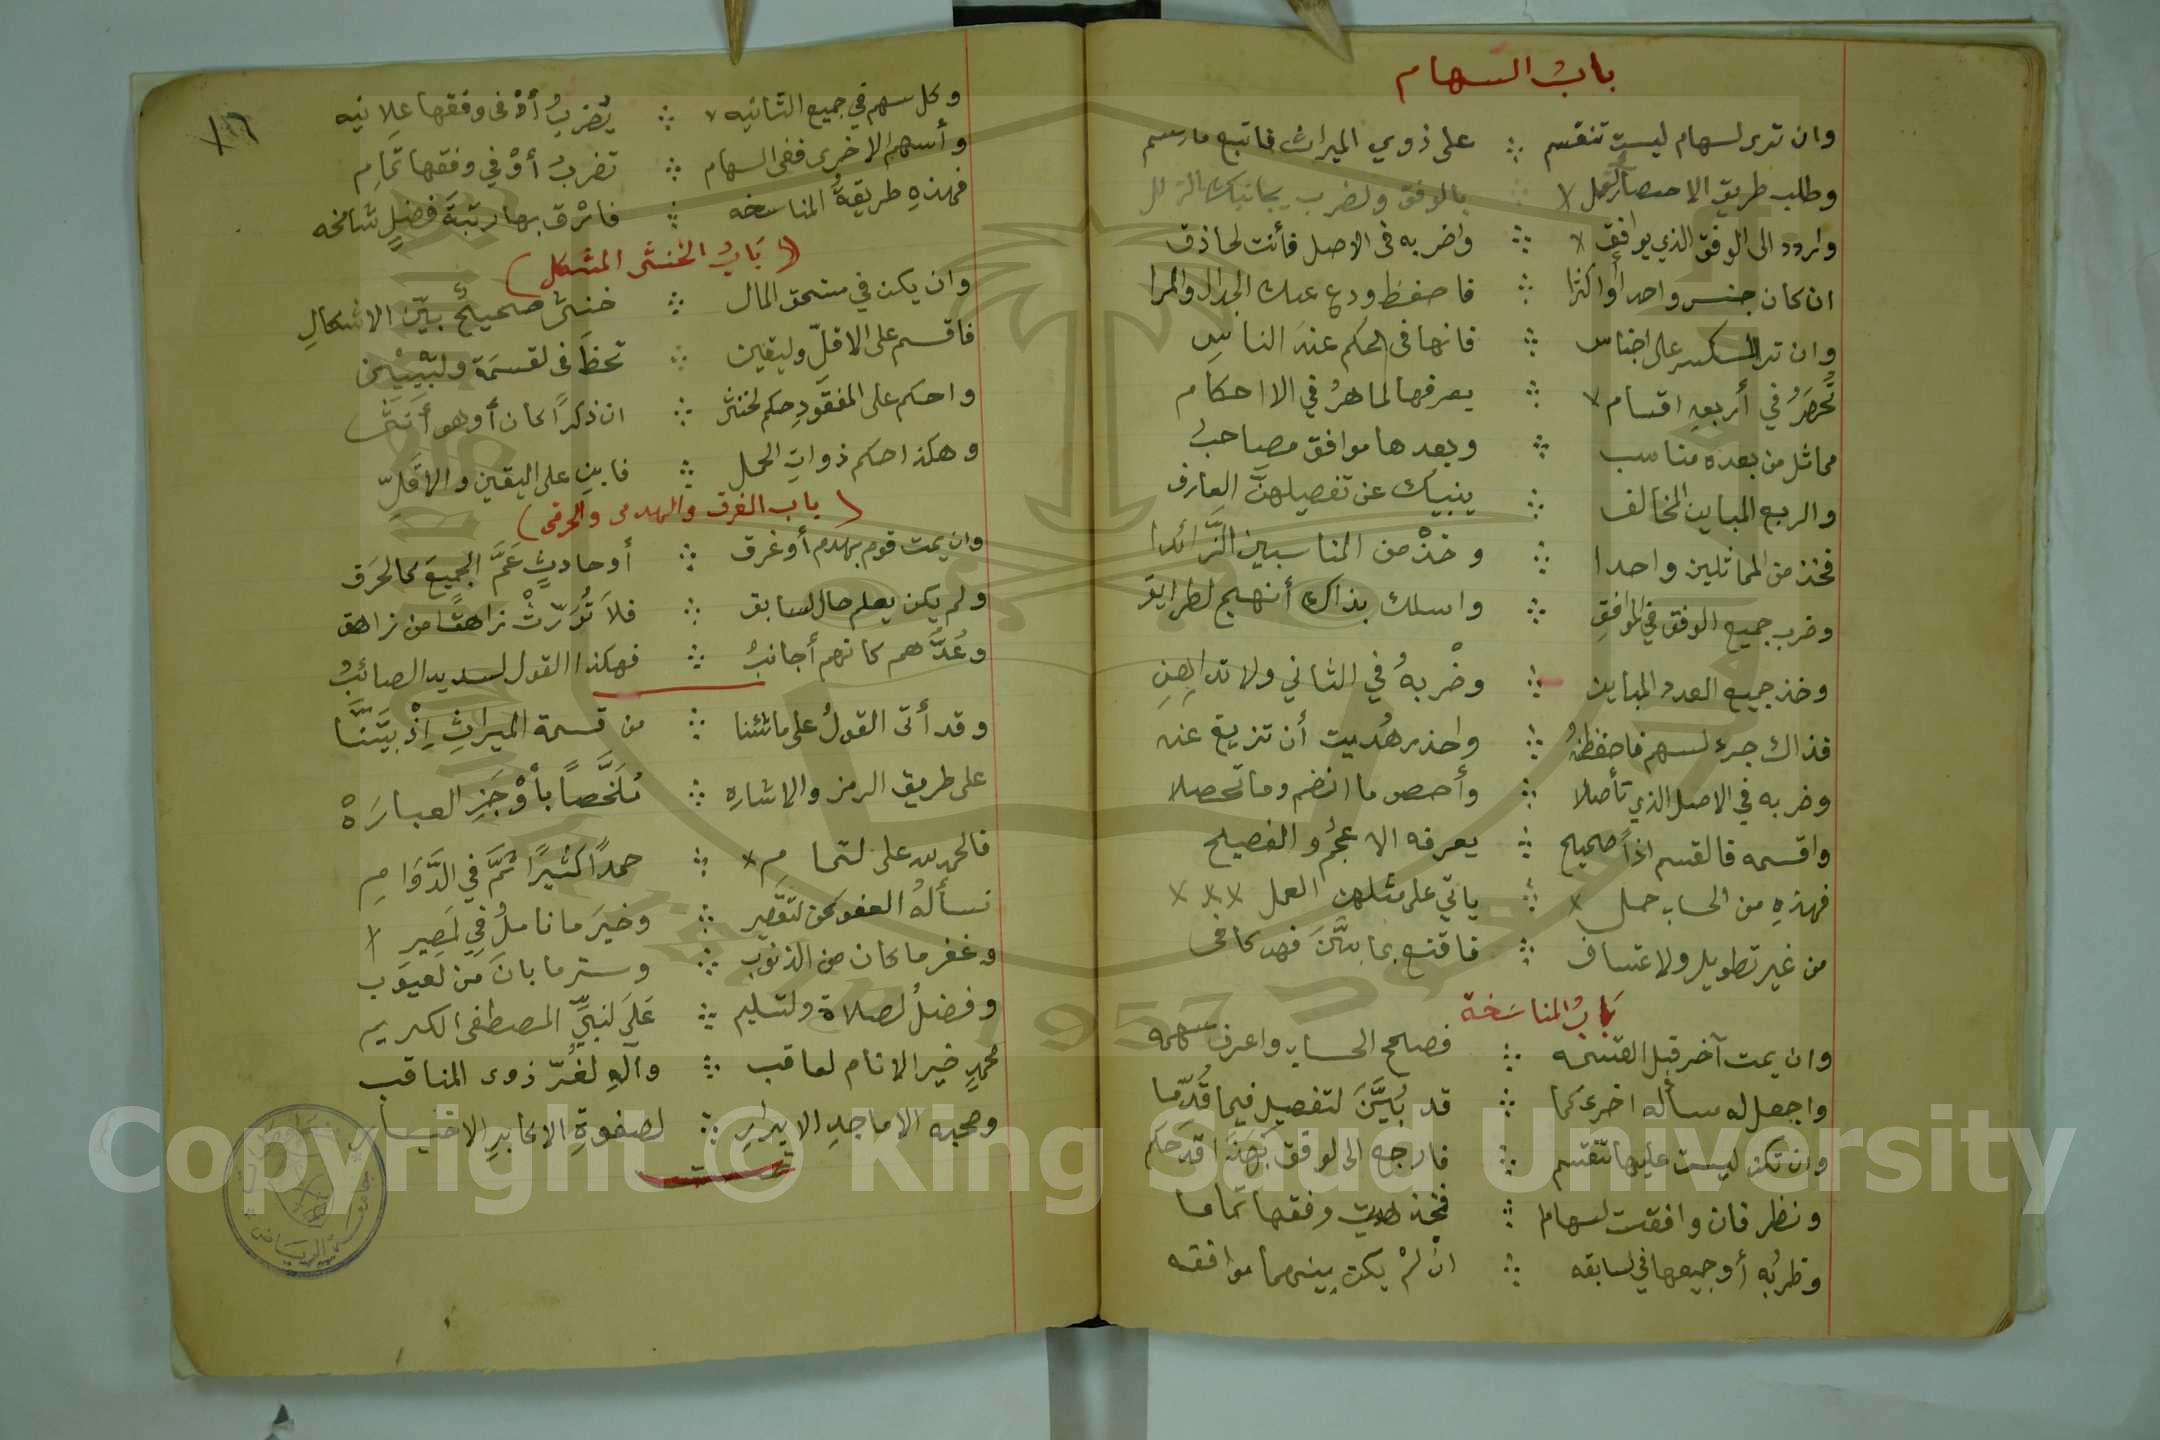 باب السهام
وان ترى السهام ليست تنقسم ∴ على ذوي الميراث فاتبع ما رسم
وطلب طريق الاختصار العمل ∴ بالوفق والضرب يجانبك الزلل
واردد الى الوفق الذي يوافق ∴ واضربه فى الاصل فأنت الحاذق
ان كان جنس واحدا أو اكثرا ∴ فاحفظ ودع عنك الجدال والمرا
وان تر الكسر على اجناس ∴ فانها فى الحكم عند الناسِ
تُحصَرُ في أربعهِ اقسام ∴ يعرفها الماهرُ في الاحكام
مماثل من بعده مناسب ∴ وبعدها موافق مصاحبُ
والرابع المباين المخالف ∴ ينبيك عن تفصيلهنَّ العارف
فخذ من المماثلين واحدا ∴ وخذْ من المناسبين الزَّائدا
وضرب جميع الوفق في الموافقِ ∴ واسلك بذاك أنهج الطرايق
وخذ جميع العدد المباين ∴ وضْربهُ في الثاني ولا تداهِنِ
فذاك جزء السهم فاحفظنهُ ∴ واحذر هُديت أن تزيغ عنه
وضربه في الاصل الذي تأصلا ∴ وأحص ما انضم وما تحصلا
واقسمه فالقسم اذاً صحيح ∴ يعرفه الاعجمُ والفصيح
فهذهِ من الحساب جمل ∴ ياتي على مثلهن العمل
من غير تطويل ولا عتساف ∴ فاقنع بما بيَّنَ فهو كافى
بَابُ المناسَخة
وان يمت آخر قبل القسمه ∴ فصحح الحساب واعرف سهمه
واجعل له مسأله اخرى كما ∴ قد بُيِّنَ لتفصيل فيما قُدِّما
وان تكن ليست عليها تنقسم ∴ فارجع الى لوفق بهذا قد حكم
ونظر فان وافقت السهاما ∴ فخذ هديت وفقها تماما
وضربُه أو جميعها في السابقه ∴ ان لمْ يكن بينهما موافقه
١٦
وكل سهم في جميع الثانيه ∴ يُضربُ أوْ فى وفقها علانيه
وأسهم الاخرى ففى السهام ∴ تضربُ أوْ في وفقها تمامِ
فهذهِ طريقةُ المناسخه ∴ فارْق بها رتبةَ فضلٍ شامخه
(بَابُ الخنثى المشكل)
وان يكن في مستحق المال ∴ خنثى صحيحٌ بيِّن الاشكالِ
فاقسم على الاقلِّ وليقين ∴ تحظَ فى لقسمَة ولتبيْين
واحكم على المفقودِ حكم لخنثى ∴ ان ذكرًا كان أو هو أنثى
وهكذا حكم ذواتِ الحمل ∴ فابنِ على اليقين والاقَلِّ
(باب الغرق والهدمى والحرقى)
وان يمت قوم بهدم أو غرق ∴ أو حادثٍ عَمَّ الجميعَ كالحرَق
ولم يكن يعلم حال لسابق ∴ فلاَ تُوَرّثْ زاهقًا من زاهق
وعُدَّهم كانهم أجانبُ ∴ فهكذا القول لسديد الصائبُ
وقد أتى القولُ على ما شئنا ∴ من قسمة الميراثِ اِذْ بيَّنَّا
على طريق الرمز والاشاره ∴ مُلَخَّصاً بأوْجَزِ العبارَهْ
فالحمد لله على لتمامِ ∴ حمدًا كثيرًا تمَّ في الدَّوَامِ
نسألُه العفو عن لتقصير ∴ وخيرَ ما ناملُ فِي لمَصِير
وغفر ما كان من الذنوب ∴ وستر ما بانَ من لعيوب
وفضلُ لصلاة ولتسليم ∴ عَلَى لنبيِّ المصطفى الكريم
محمدٍ خير الانام لعاقب ∴ وآلهِ لغُرّ ذوى المناقب
وصحبه الاماجدِ الابرارِ ∴ لصفوةِ الاكابرِ الاخيار
جامعة الرياض
Copyright © King Saud University
1957